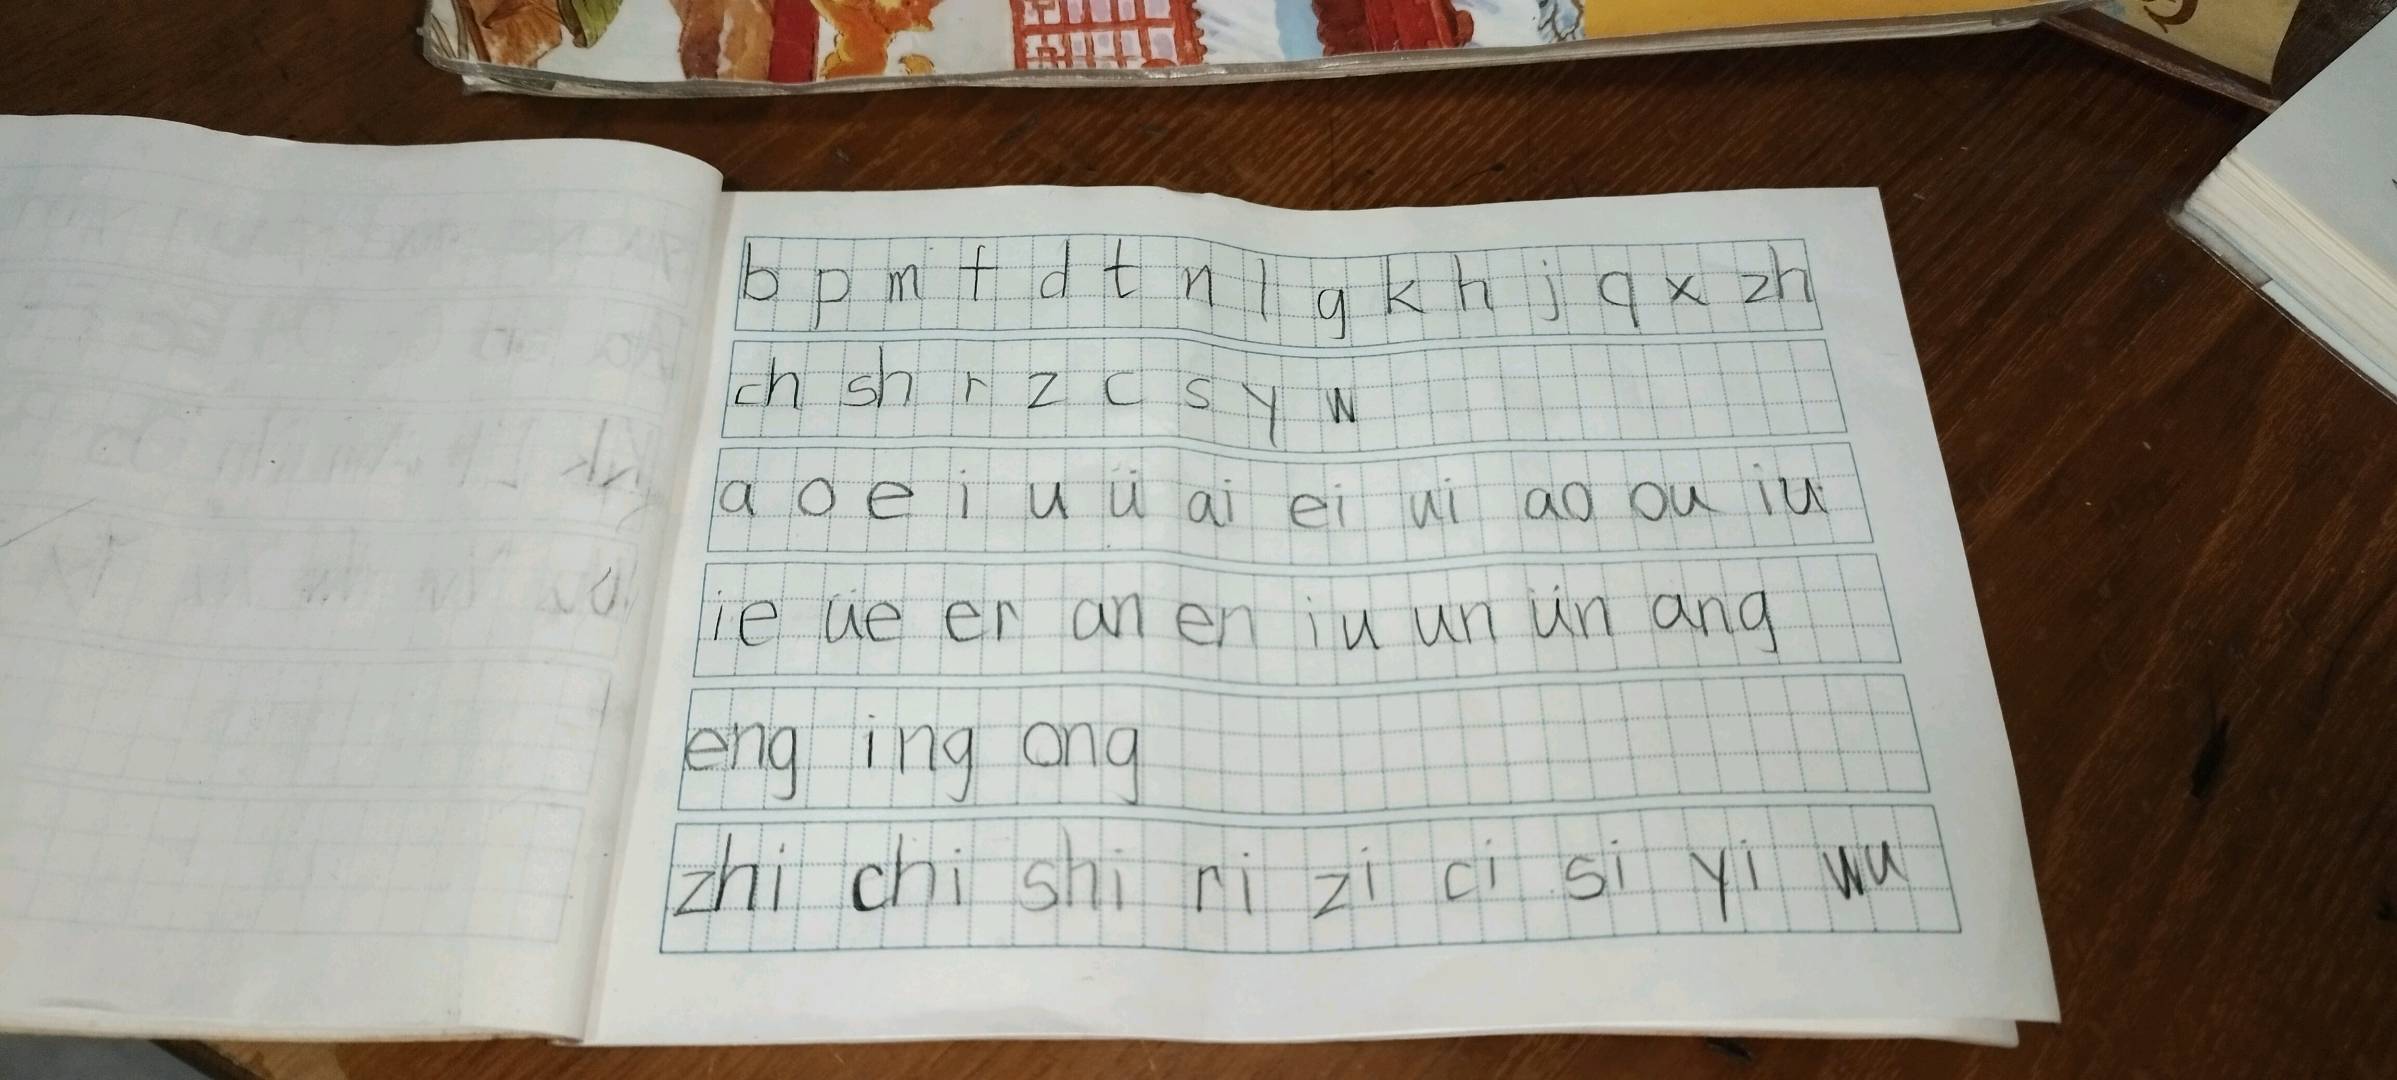 b p m f d t n l g k h j q x zh
ch sh r z c s y w
a o e i u ü ai ei ui ao ou iu
ie üe er an en iu un ün ang
eng ing ong
zhi chi shi ri zi ci si yi wu